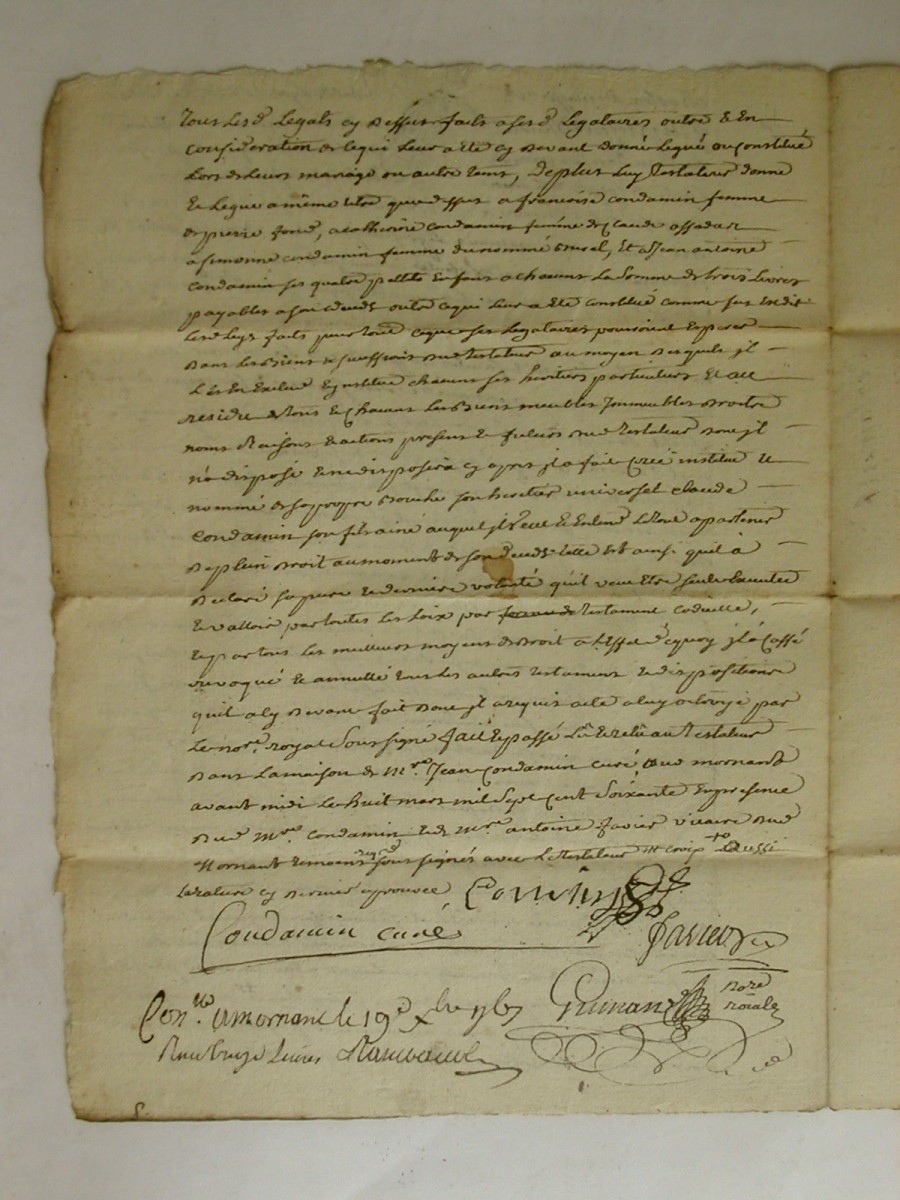 Tous Lesd Legats cy dessus faits a ses d Legataires outre & En
consideration de ce qui Leur a Eté cy devant donné Legué ou Constitué
Lors de Leurs mariage ou autre tems, Deplus Luy Testateur donne
Et Legue a même titre que dessus a francoise condamin femme
de pierre fond, a catherine condamin femme de Claude assada
a simonne condamin femme du nommé, Et a Jean antoine
condamin ses quatre petits Enfans a chacun La somme de trois Livres
payables a son deceds outre ce qui Leur a Eté constitué comme sus Est dit
Lesd Legs faits pour tout ce que ses Legataires pouroient Esperer
dans Les Biens & successions dud Testateur au moyen desquels jl
Les En Exclue Et jnstitue chacuns ses heritiers particuliers Et au
residu de tous & Chacuns Les Biens meubles Jmmeubles droits
noms Raisons & actions presents & futurs dud Testateur dont jl
n'a disposé & ne disposera cy apres jl a fait Créé institué &
nommé de sa propre Bouche son heritier universel Claude
Condamin son fils ainé auquel jl veut & Entend Le tout apartenir
de plein droit au moment de son deceds cette Est ainsi quil à
declaré sa pure & derniere volonté qu'il veut Etre
Et valloir par toutes Les Loix par forme de Testament codicille,
& par tous Les meilleurs moyens de droit a L'Effet de quoy jl a Cassé
revoqué & annullé tous Les autres testament & dispositions
quil a cy devant fait dont jl a requis acte a luy octroyé par
Le nore. royal soussigné fait & passé Lu & relu au Testateur
dans La maison de Mre. Jean Condamin curé dud mornant
avant midi Le huit mars mil sept cent soixante En presence
dud Mre. Condamin & de Mre antoine Vicaire dud
Mornant temoins soussignés avec Le testateur
La rature cy derniere aprouvée
Condamin curé
nore
roial
Conlé a mornant le 19e
Recu treize Livres